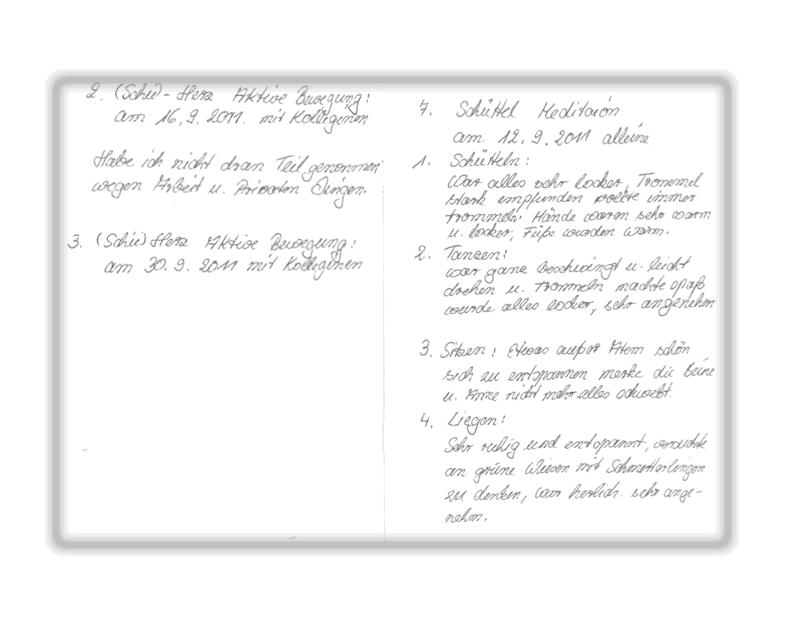 2. (Schü)-Herz Aktive Bewegung:
am 16.9.2011. mit Kolleginen
Habe ich nicht dran Teil genommen
wegen Arbeit u. Privaten Dingen.
3. (Schü) Herz Aktive Bewegung:
am 30.9.2011 mit Kolleginen
7. Schüttel Meditaión
am 12.9.2011 alleine
1. Schütteln:
War alles sehr locker, Trommel
stark empfunden wollte immer
trommeln. Hände waren sehr warm
u. locker, Füße wurden warm.
2. Tanzen:
war ganz beschwingt u. leicht
drehen u. trommeln machte spaß
wurde alles locker, sehr angenehm
3. Sitzen: Etwas außer Atem schön
sich zu entspannen merke die Beine
u. Arme nicht mehr alles schwebt.
4. Liegen:
Sehr ruhig und entspannt, versuchte
an grüne Wiesen mit Schmetterlingen
zu denken, war herlich. sehr ange-
nehm.